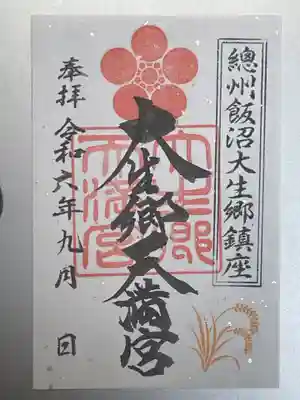 總州飯沼大生郷鎮座
大生郷天満宮
奉拝 令和六年九月 日
大生郷
天満宮